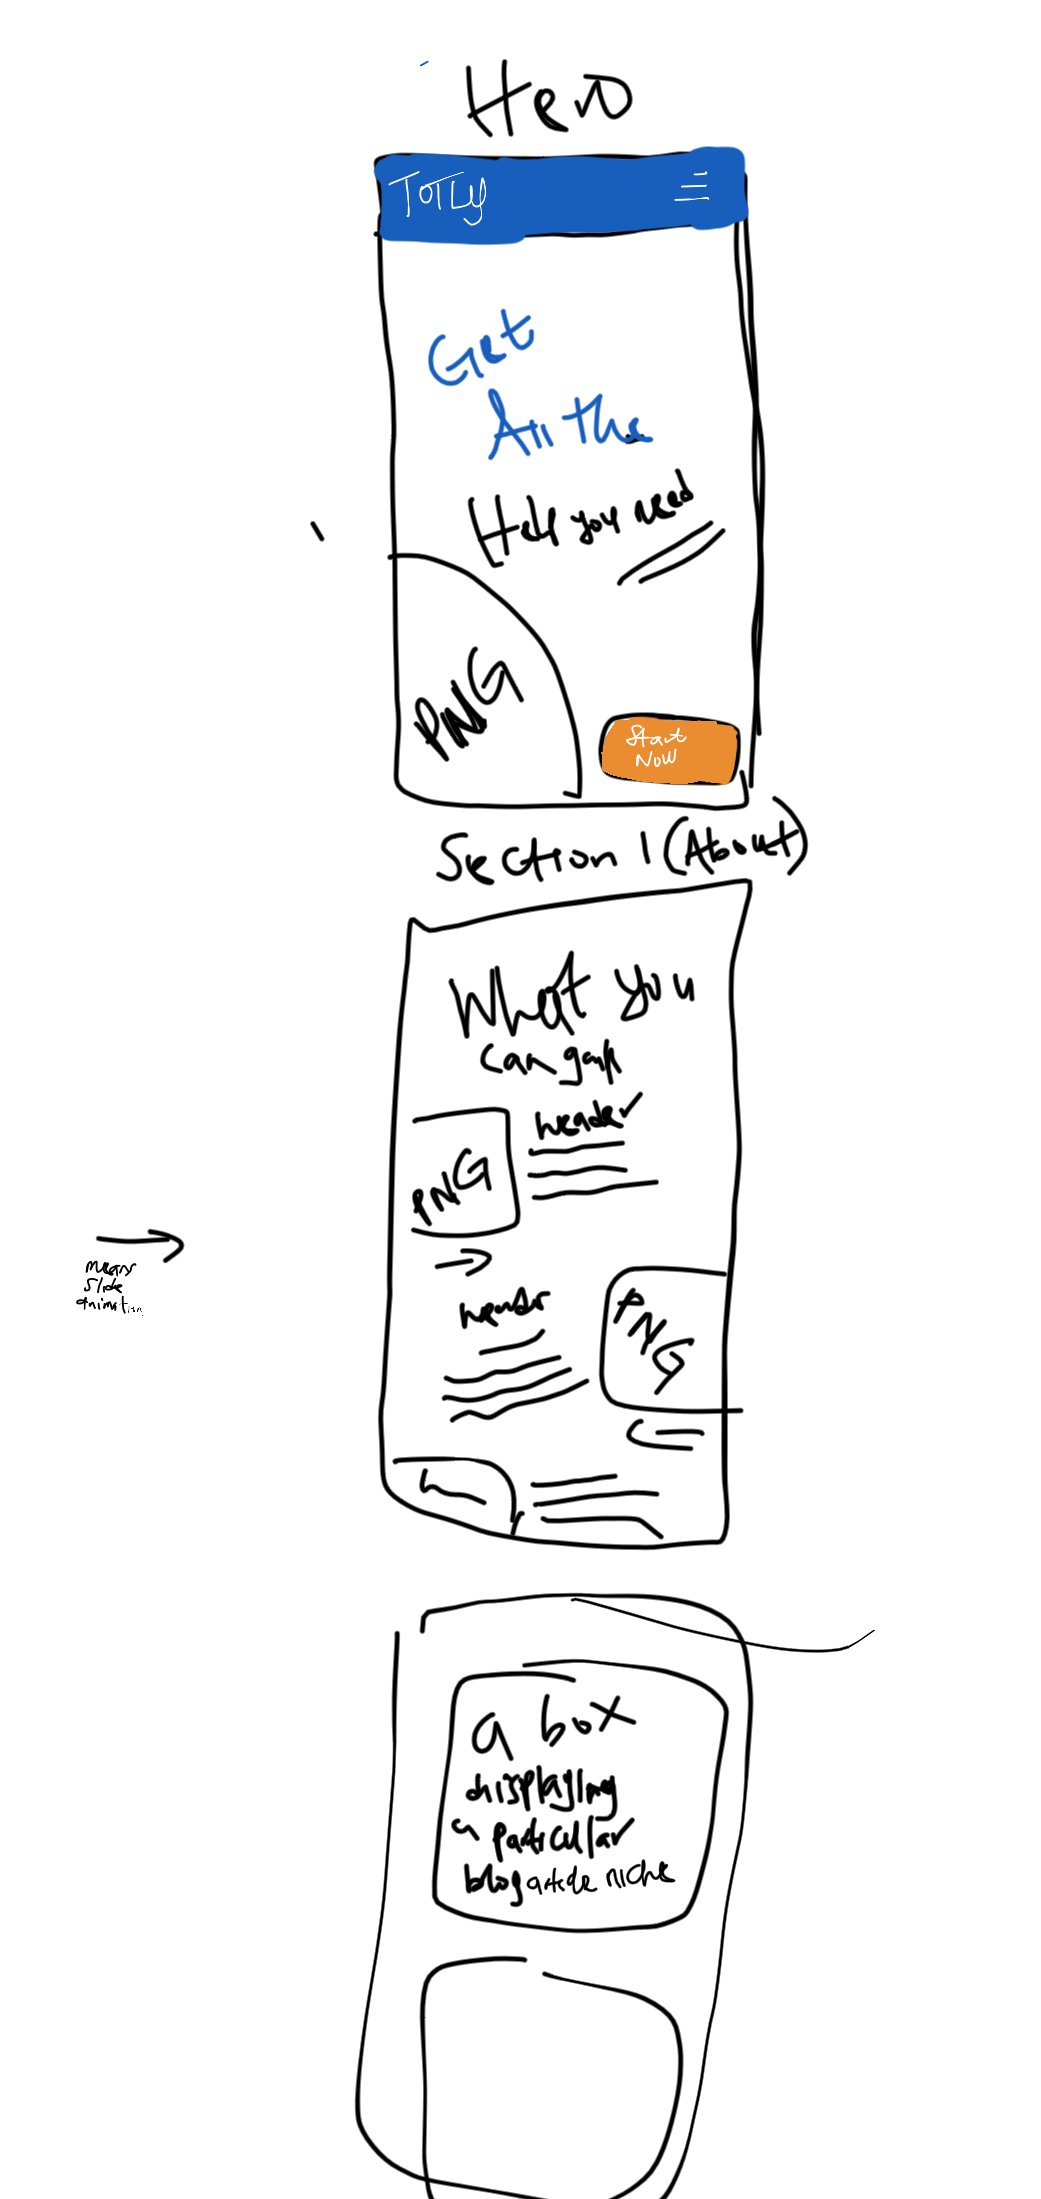 Hero
ToTLy
Get
All the
Help you need
PNG
Start
Now
Section 1 (About)
What you
can gain
PNG
header
means
slide
animation
header
PNG
a box
displaying
a particular
blog article niche